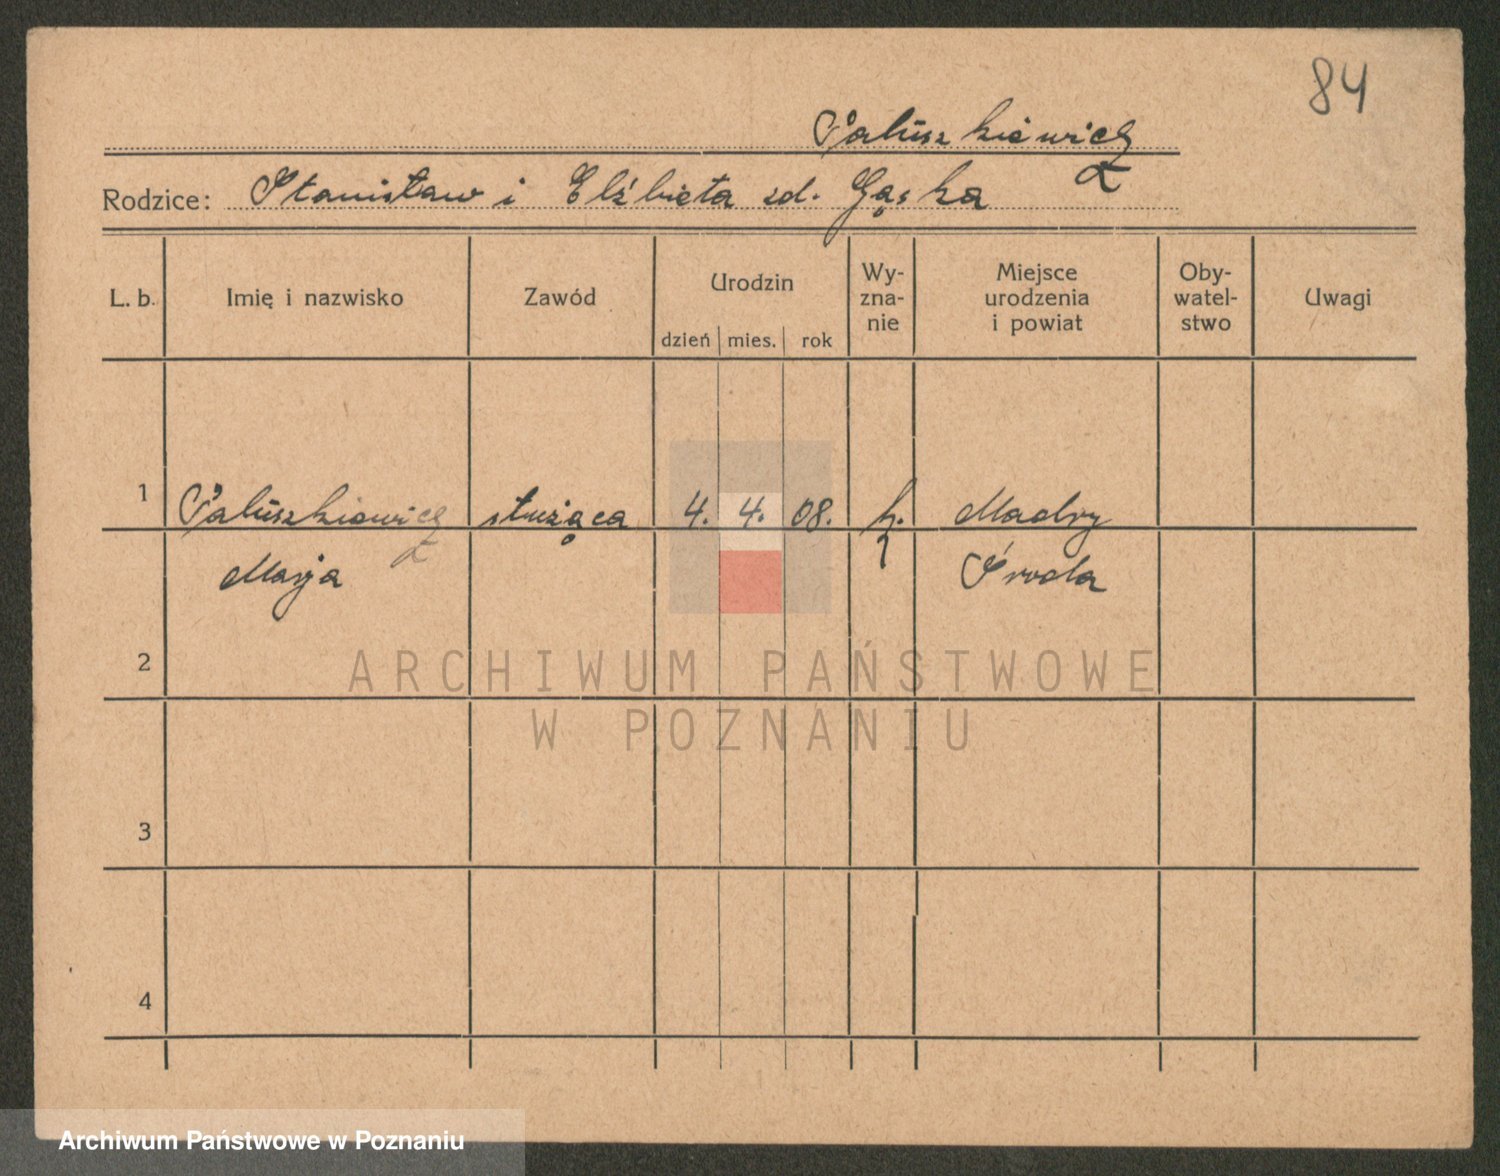 84
Paluszkiewicz
Rodzice: Stanisław i Elżbieta zd. Gąska
L. b. Imię i nazwisko Zawód Urodzin Wy- zna- nie Miejsce urodzenia i powiat Oby- watel- stwo Uwagi
dzień mies. rok
1 Paluszkiewicz służąca 4. 4. 08. k. Mądry
Marja Środa
2
ARCHIWUM PAŃSTWOWE
W POZNANIU
3
4
Archiwum Państwowe w Poznaniu